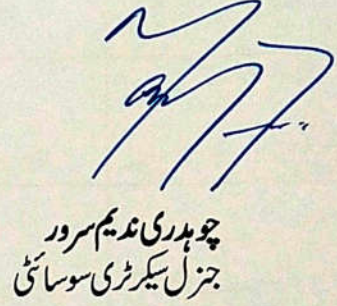 چوہدری ندیم سرور
جنرل سیکرٹری سوسائٹی